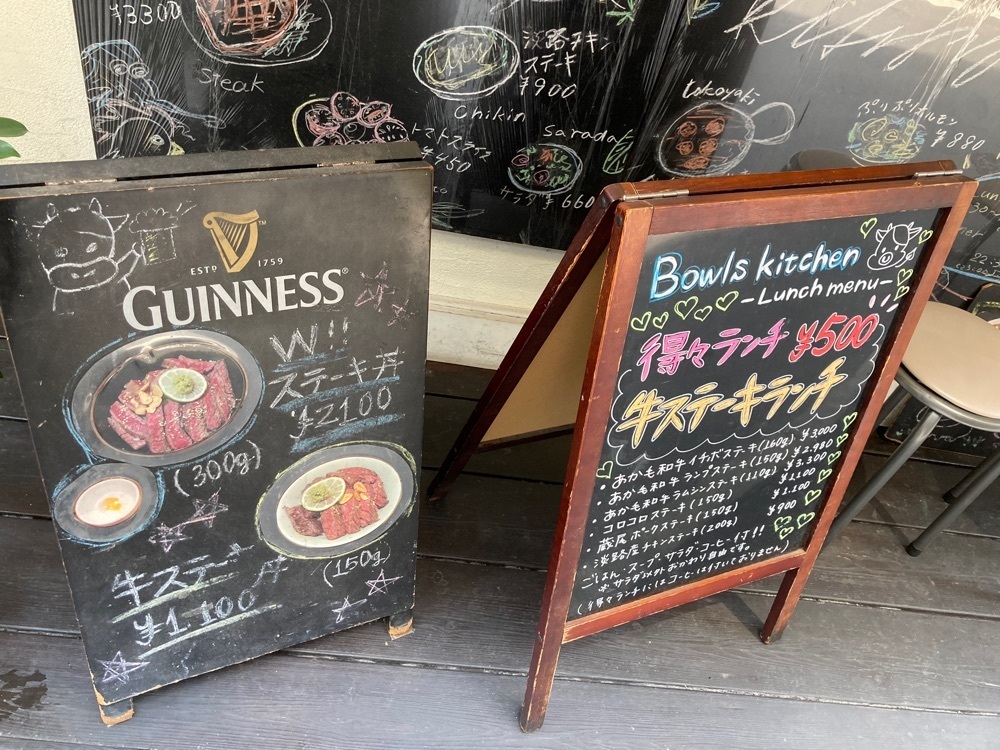 ¥3300
Steak
淡路チキン
ステーキ
¥900
Chikin
トマトスライス
¥450
Saradah
サラダ ¥660
takoyaki
ぷりぷりホルモン
¥880
ESTD 1759
GUINNESS
W!!
ステーキ丼
¥2100
(300g)
(150g)
牛ステーキ丼
¥1.100
Bowls kitchen
-Lunch menu-
得々ランチ ¥500
牛ステーキランチ
・あかも和牛イチボステーキ(160g) ¥3000
・あかも和牛ランプステーキ(150g) ¥2.980
・あかも和牛ラムシンステーキ(110g) ¥3.300
・コロコロステーキ(150g) ¥1.100
・蔵尾ポークステーキ(150g) ¥1.100
・淡路産チキンステーキ(200g) ¥900
ごはん・スープ・サラダ・コーヒー付!!
※サラダ以外おかわり自由です。
(得々ランチにはコーヒーは付いておりません)